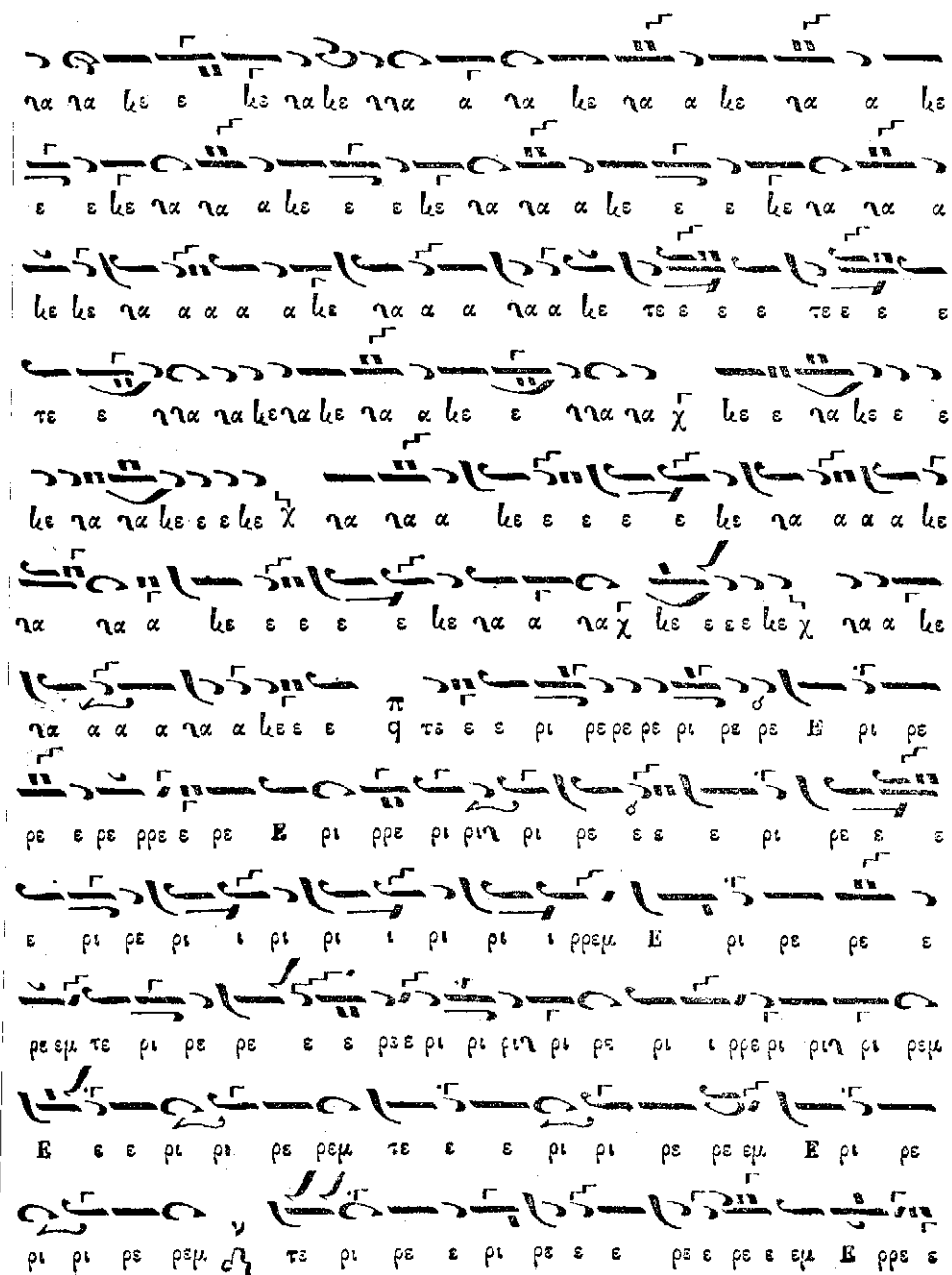 να να κε ε κε να κε ννα α να κε να α κε να α κε
ε ε κε να να α κε ε ε κε να να α κε ε ε κε να να α
κε κε να α α α α κε να α α α να α κε τε ε ε ε τε ε ε ε
τε ε ννα να κε να κε να α κε ε ννα να χ κε ε να κε ε ε
κε να να κε ε ε κε χ να να α κε ε ε ε ε κε να α α α κε
να να α κε ε ε ε ε κε να α να χ κε ε ε ε κε χ να α κε
να α α α να α κε ε ε π q τε ε ε ρι ρε ρε ρε ρι ρε ρε Ε ρι ρε
ρε ε ρε ρρε ε ρε Ε ρι ρρε ρι ριν ρι ρε ε ε ε ρι ρε ε ε
ε ρι ρε ρι ι ρι ρι ι ρι ρι ι ρρεμ Ε ρι ρε ρε ε
ρε εμ τε ρι ρε ρε ε ε ρε ε ρι ρι ριν ρι ρε ρι ι ρρε ρι ριν ρι ρεμ
Ε ε ε ρι ρι ρε ρεμ τε ε ε ρι ρι ρε ρε εμ Ε ρι ρε
ρι ρι ρε ρεμ τε ρι ρε ε ρι ρε ε ε ρε ε ρε ε εμ Ε ρρε ε